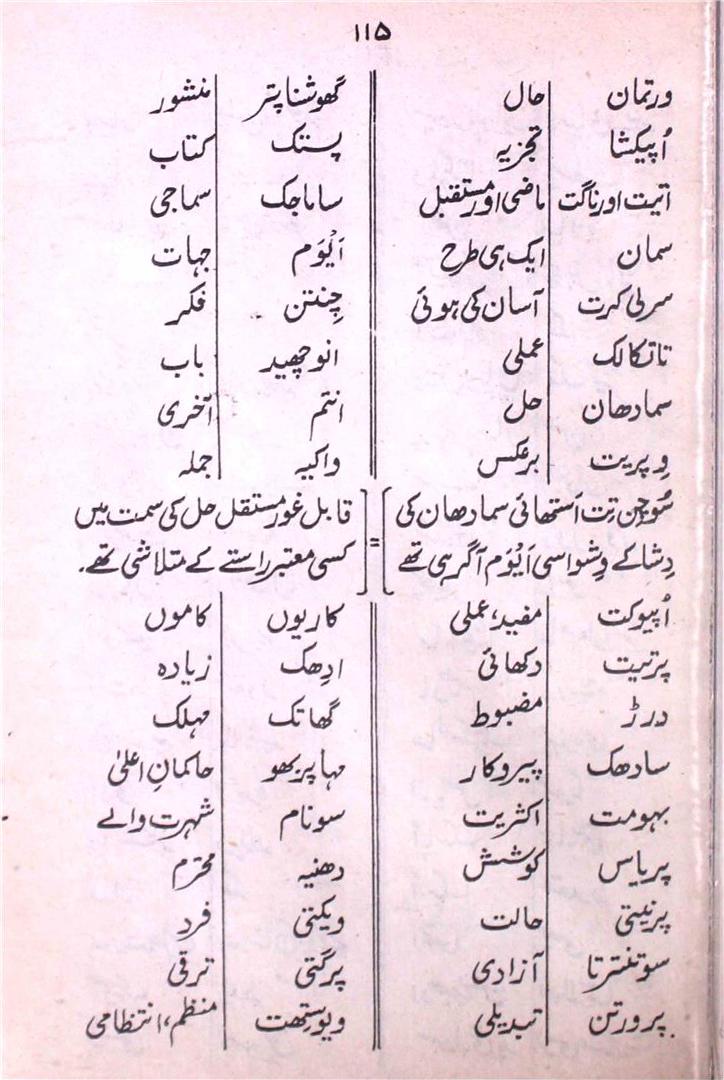 ۱۱۵
ورتمان حال گھوشناپتر منشور
اُپیکشا تجزیہ پستک کتاب
اتیت اور ناگت ماضی اور مستقبل ساماجک سماجی
سمان ایک ہی طرح اَیُوَم جہات
سرلی کرت آسان کی ہوئی چِنتن فکر
تاتکالک عملی انوچھید باب
سمادھان حل انتم آخری
وِپریت برعکس واکیہ جملہ
سُوچِن تِت اَستھائی سمادھان کی = قابل غور مستقل حل کی سمت میں
دِشا کے وِشواسی اَیُوَم آگرہی تھے کسی معتبر راستے کے متلاشی تھے۔
اُپیوکت مفید، عملی کاریوں کاموں
پرتیت دکھائی ادِھک زیادہ
درڑ مضبوط گھاتک مہلک
سادھک پیروکار مہاپربھو حاکمانِ اعلیٰ
بہومت اکثریت سونام شہرت والے
پریاس کوشش دھنیہ محترم
پرنیتی حالت ویکتی فرد
سوتنترتا آزادی پرگتی ترقی
پرورتن تبدیلی ویوستِھت منظم، انتظامی